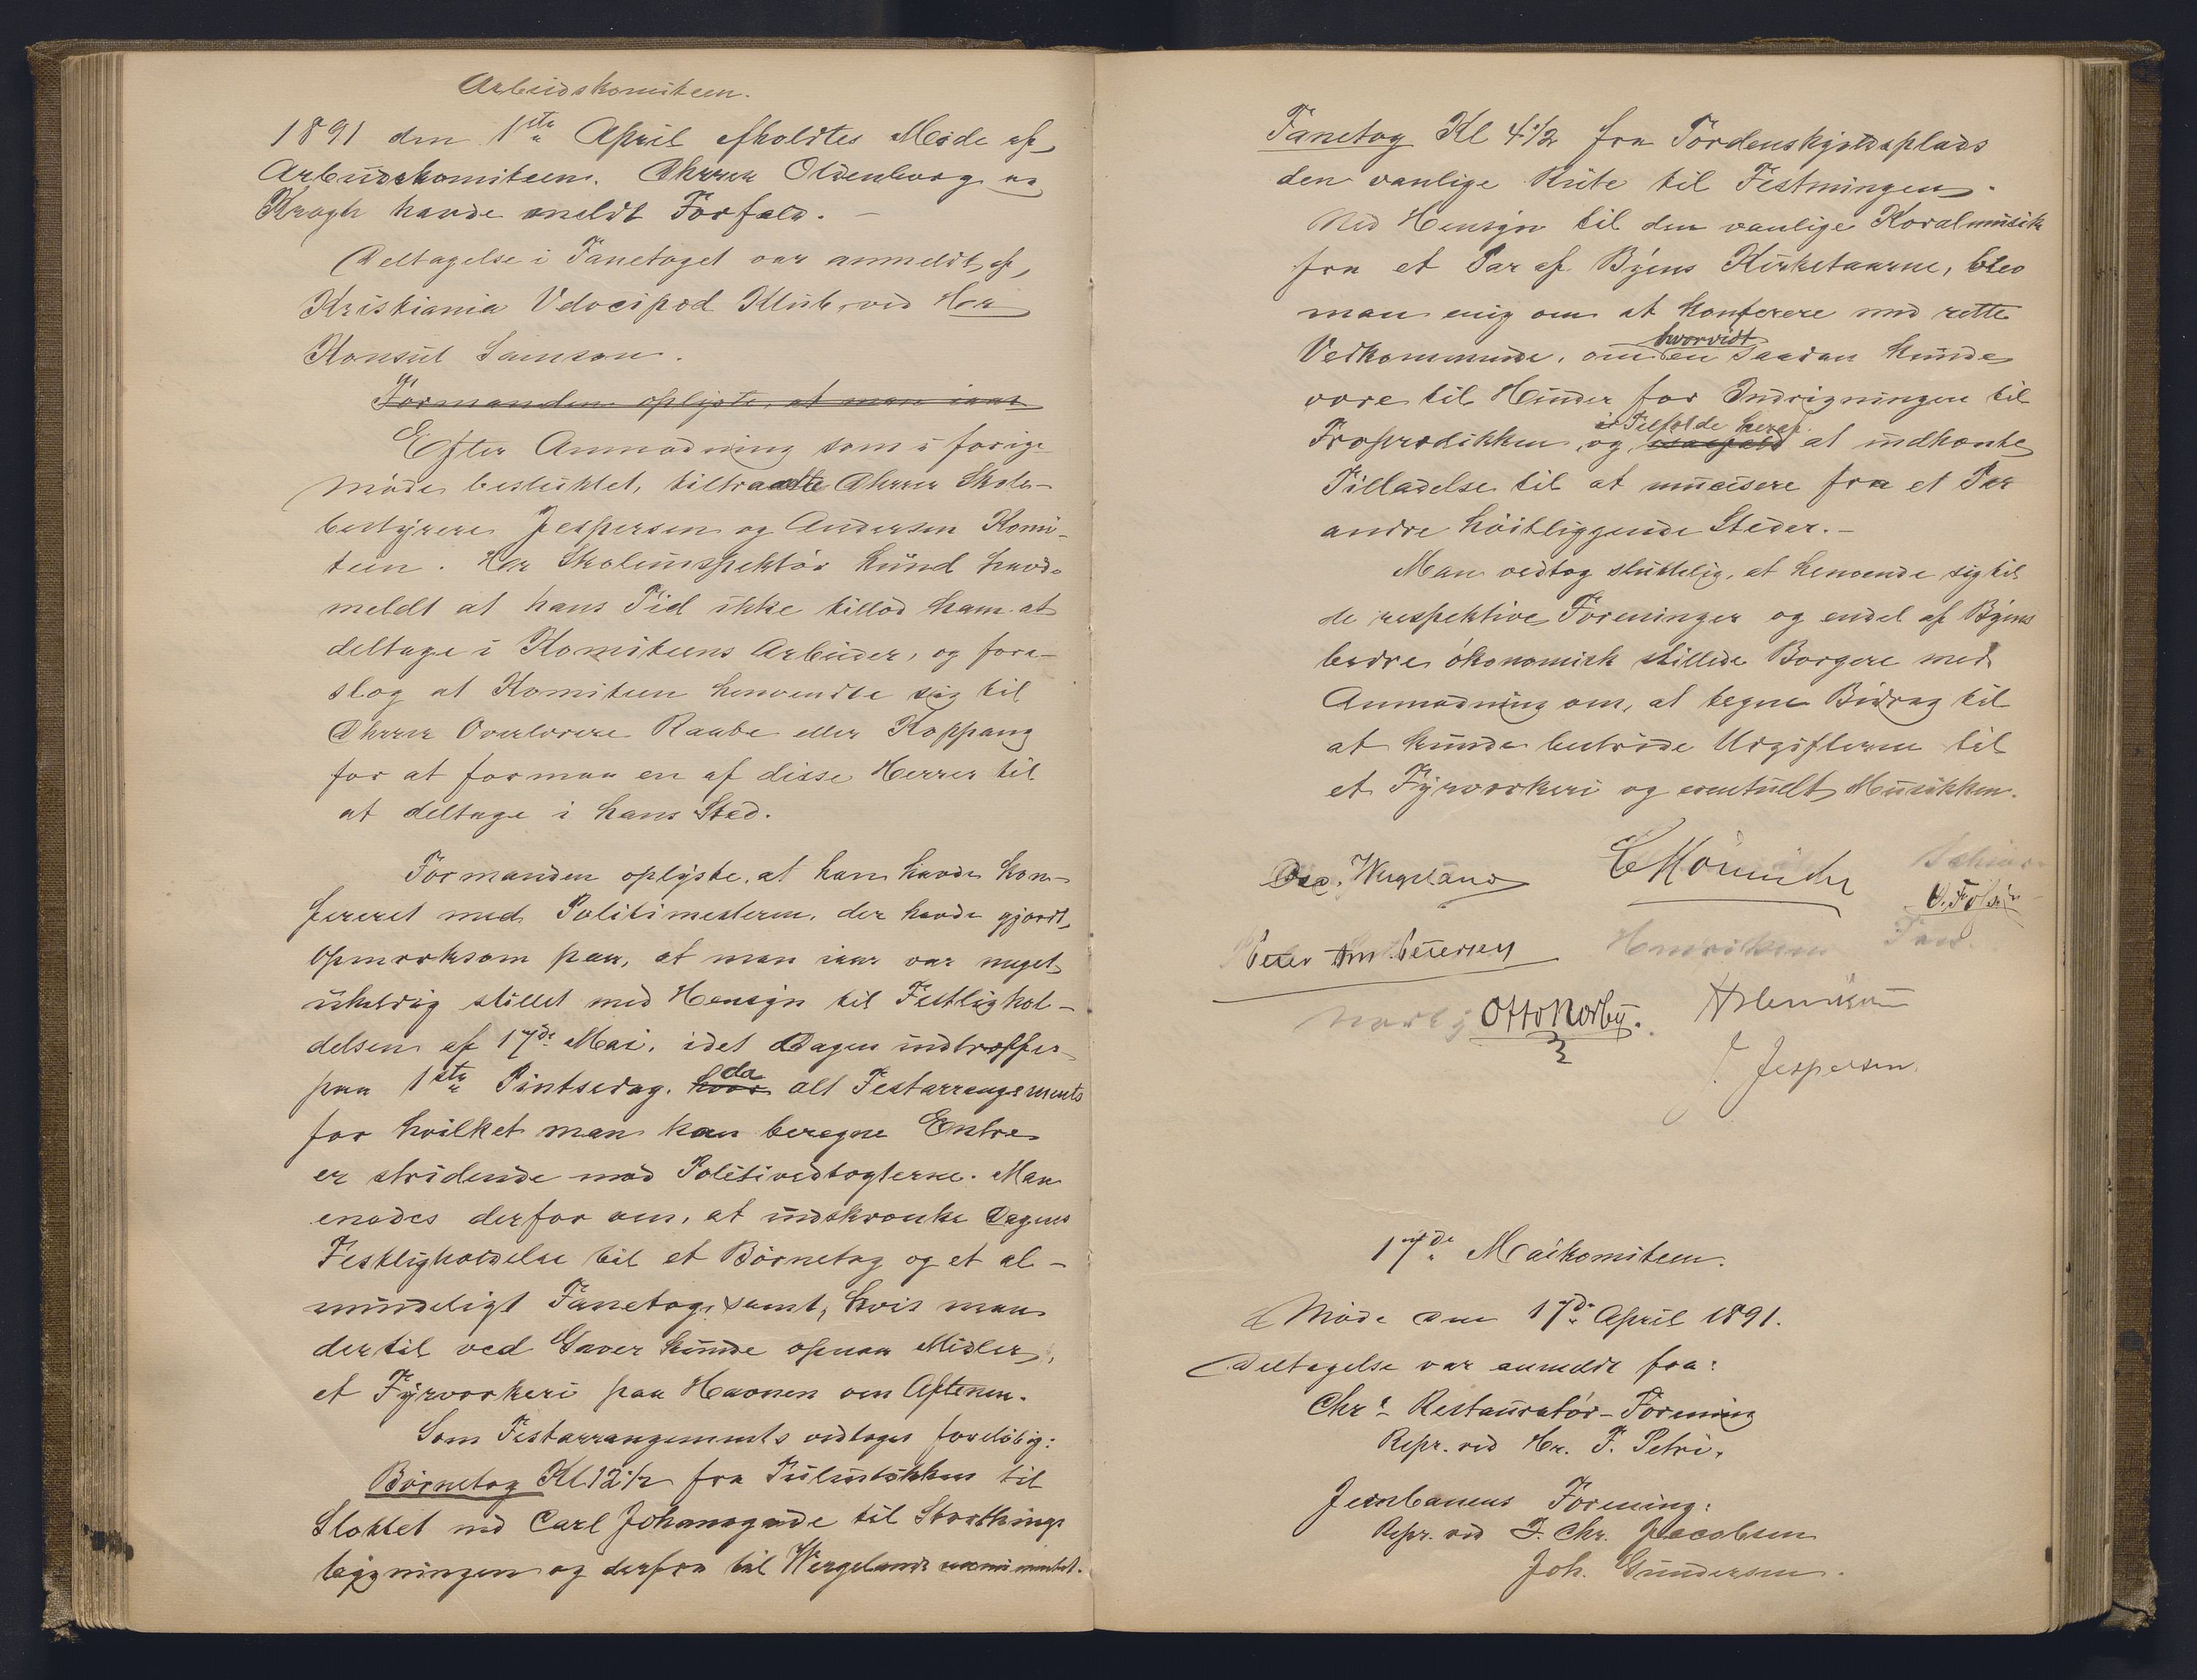 Arbeidskomiteen.
1891 den 1ste April afholdtes Møde af
Arbeidskomiteen. Dhrrer Oldenborg og
Krogh havde meldt Forfald. –
Deltagelse i Fanetoget var anmeldt af
Kristiania Velocipod Klub ved Hr
Konsul Samson.
Formanden oplyste, at man iaar
Efter Anmodning som i forige
Møde besluttet, tiltraadte Dhrrer Skole-
bestyrere Jespersen og Andersen Komi-
teen. Hr Skoleinspektør Lund havde
meldt at hans Tid ikke tillod ham at
deltage i Komiteens Arbeider, og fore-
slog at Komiteen henvendte sig til
Dhrrer Overlærere Raabe eller Koppang
for at formaa en af disse Herrer til
at deltage i hans Sted.
Formanden oplyste, at han havde kon-
fereret med Politimesteren, der havde gjordt
Opmærksom paa, at man iaar var meget
uheldig stillet med Hensyn til Festlighol-
delsen af 17de Mai, idet Dagen indtræffer
paa 1ste Pintsedag, hvor da alt Festarrangements
for hvilket man kan beregne Entre
er stridende mod Politivedtægterne. Man
enedes derfor om, at indskrænke Dagens
Festligholdelse til et Børnetog og et al-
mindeligt Fanetog, samt, hvis man
dertil ved Gaver kunde opnaa Midler,
et Fyrværkeri paa Havnen om Aftenen.
Som Festarrangements vedtoges foreløbig:
Børnetog Kl 12 1/2 fra Tulinløkken til
Slottet ned Carl Johansgade til Storthings
bygningen og derfra til Wergelands monumentet.
Fanetog Kl 4 1/2 fra Tordenskjoldsplads
den vanlige Rute til Festningen.
Med Hensyn til den vanlige Koralmusik
fra et Par af Byens Kirketaarne, blev
man enig om at konferere med rette
Vedkommende, om hvorvidt en saadan kunde
være til Hinder for Indrigningen til
Froprædikken, og i Tilfælde heraf at indhente
Tilladelse til at musisere fra et Par
andre høitliggende Steder. –
Man vedtog sluttelig, at henvende sig til
de respektive Foreninger og endel af Byens
bedre økonomisk stillede Borgere med
Anmodning om, at tegne Bidrag til
at kunde bestride Udgifterne til
et Fyrværkeri og eventuelt Musikken.
Osc. Wergeland
O. Folsén
Peter Ant. Petersen
Henriksen
Norby Otto Norby.
J. Jespersen.
17de Maikomiteen.
Møde den 17de April 1891.
Deltagelse var anmeldt fra:
Chra Restauratør-Forening
Repr. ved Hr. F. Petri.
Jernbanens Forening:
Repr. ved J. Chr. Jacobsen
Joh. Gundersen.